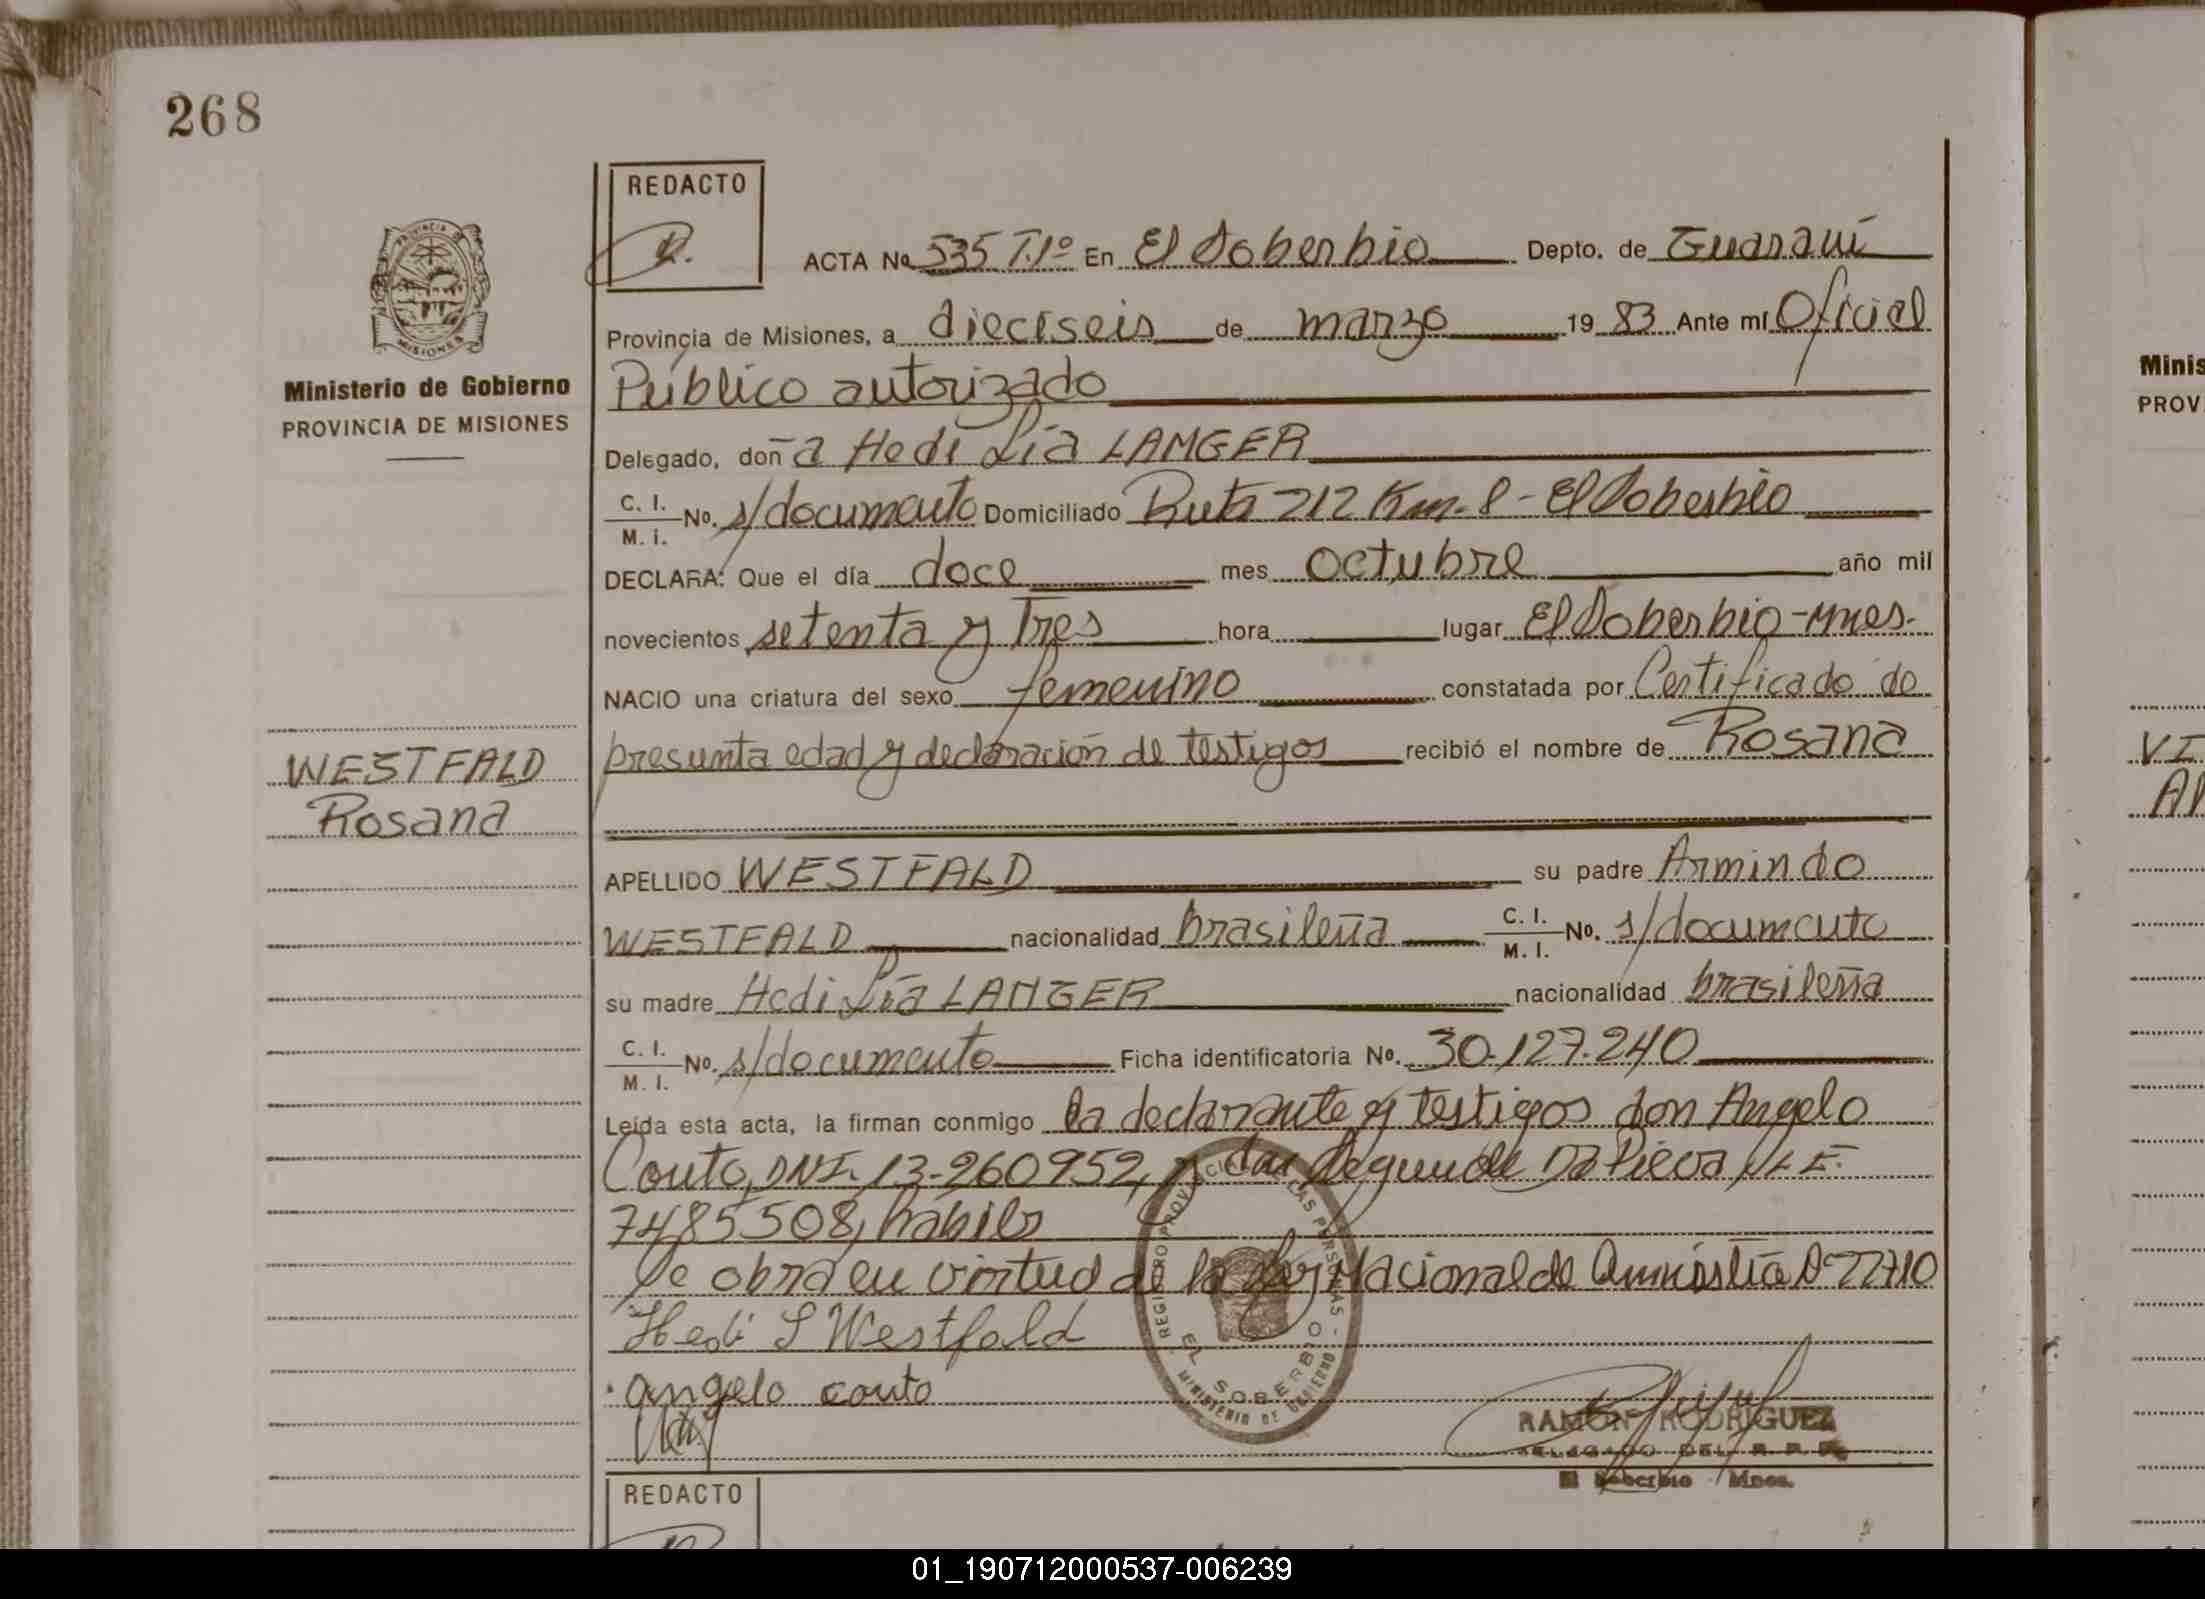 268
REDACTO
ACTA No 535 T.1º En El Soberbio Depto. de Guaraní
Provincia de Misiones, a dieciseis de marzo 19 83 Ante mí Oficial
Público autorizado
Ministerio de Gobierno
PROVINCIA DE MISIONES
Delegado, don a Hedi Lía LANGER
C. I. M. I. No. s/documento Domiciliado Ruta 212 Km. 8 - El Soberbio
DECLARA: Que el día doce mes octubre año mil
novecientos setenta y Tres hora lugar El Soberbio - Mnes.
NACIO una criatura del sexo femenino constatada por Certificado de
presunta edad y declaración de testigos recibió el nombre de Rosana
WESTFALD
Rosana
APELLIDO WESTFALD su padre Armindo
WESTFALD nacionalidad brasileña C. I. M. I. No. s/documento
su madre Hedi Lía LANGER nacionalidad brasileña
C. I. M. I. No. s/documento Ficha identificatoria No. 30.127.240
Leída esta acta, la firman conmigo la declarante y testigos don Angelo
Couto, DNI. 13.260952, y don Segundo Da Pieva, L.E.
7485508, habiles
Se obra en virtud de la Ley Nacional de Amnistía
Hedi L Westfald
angelo couto
REGISTRO PROVINCIAL DE LAS PERSONAS - EL SOBERBIO - MINISTERIO DE GOBIERNO
RAMON RODRIGUEZ
DELEGADO DEL R. P. P.
El Soberbio Mnes.
REDACTO
Minis
PROV
VI
01_190712000537-006239